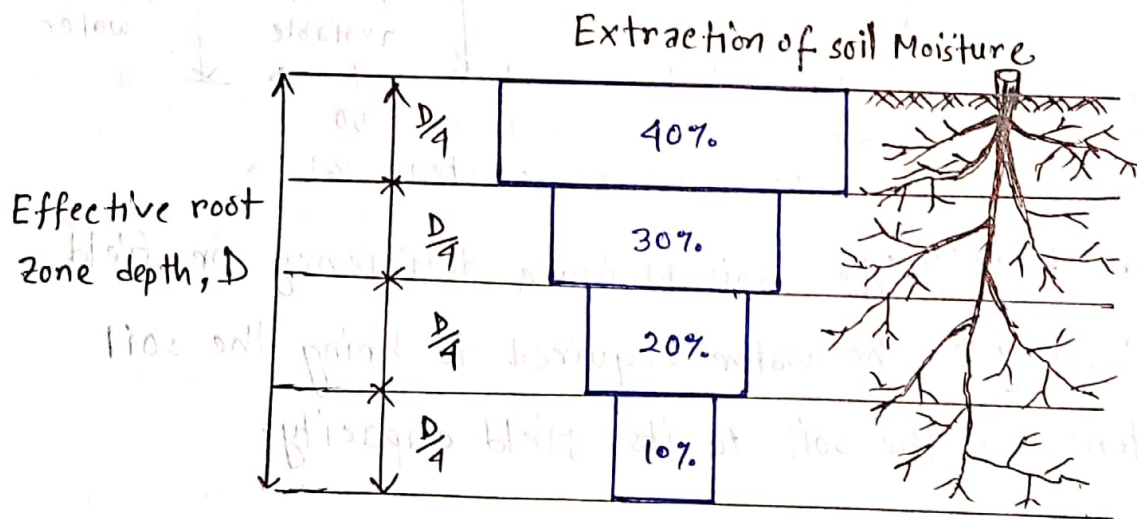 Extraction of soil Moisture
D/4
40%
Effective root
zone depth, D
D/4
30%
D/4
20%
D/4
10%